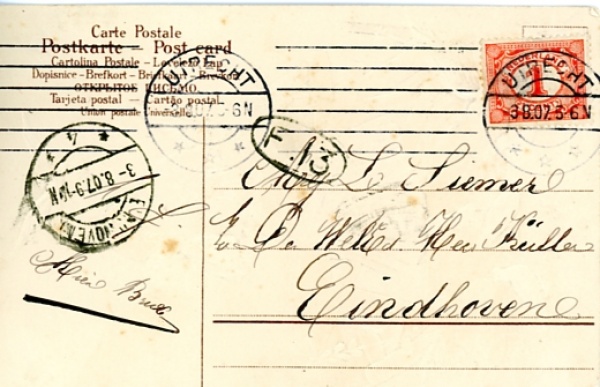 Carte Postale
Postkarte - Post card
Cartolina Postale - Levelező-Lap
Dopisnice - Brefkort - Briefkaart - Brevkort
ОТКРЫТОЕ ПИСЬМО
Tarjeta postal - Cartão postal
Union postale Universelle
UTRECHT
3-8.07. 5-6N
NEDERLAND
1
UTRECHT
3-8.07. 5-6N
F. 13
4
3-8.07. 9-
N
EINDHOVEN
L. Siemer
Heer
Eindhoven
Mien